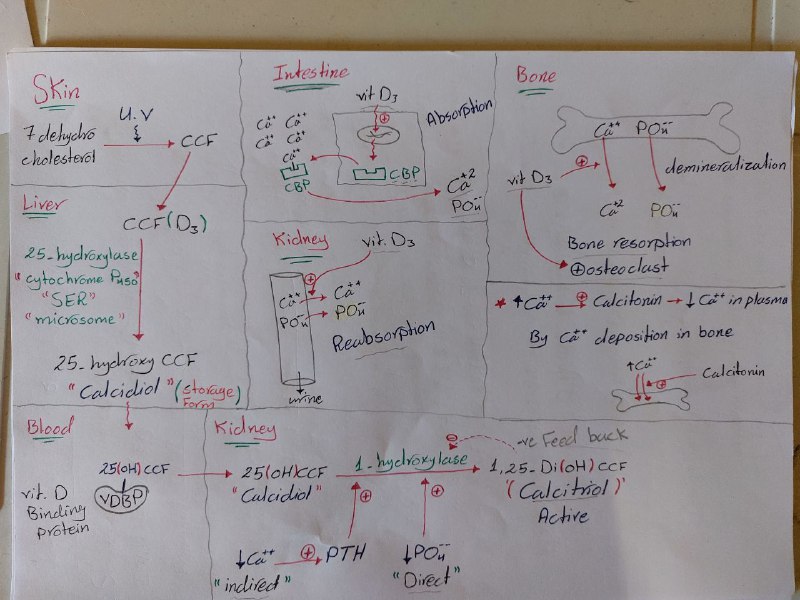 Skin
U.V
7 dehydro
cholesterol
CCF
Liver
CCF(D3)
25-hydroxylase
"cytochrome P450"
"SER"
"microsome"
25-hydroxy CCF
"Calcidiol" (storage
Form)
Intestine
vit D3
Absorption
Ca++ Ca++
Ca++ Ca++
Ca++
CBP
CBP
Ca+2
PO4--
Kidney
vit. D3
Ca++ Ca++
PO4-- PO4--
Reabsorption
urine
Bone
Ca++ PO4--
demineralization
vit D3
Ca+2 PO4--
Bone resorption
⊕osteoclast
* ↑Ca++ → ⊕ Calcitonin → ↓ Ca++ in plasma
By Ca++ deposition in bone
↑Ca++
Calcitonin
Blood
25(OH)CCF
VDBP
vit. D
Binding
protein
Kidney
-ve Feed back
25(OH)CCF
"Calcidiol"
1-hydroxylase
1,25-Di(OH)CCF
"(Calcitriol)"
Active
↓Ca++ → ⊕ PTH
"indirect"
↓PO4--
"Direct"